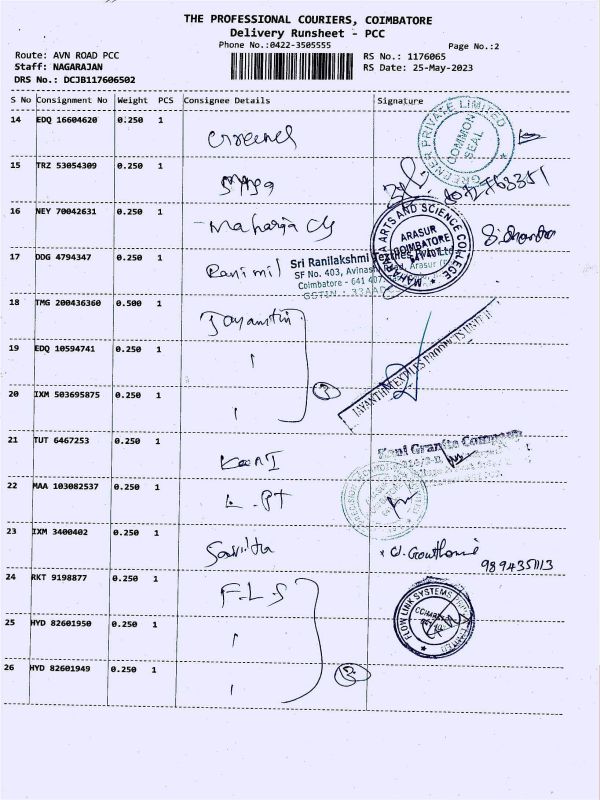 THE PROFESSIONAL COURIERS, COIMBATORE
Delivery Runsheet - PCC
Phone No.:0422-3505555
Page No.:2
Route: AVN ROAD PCC
RS No.: 1176065
Staff: NAGARAJAN
RS Date: 25-May-2023
DRS No.: DCJB117606502
S No Consignment No Weight PCS Consignee Details Signature
14 EDQ 16604620 0.250 1
GREENER PRIVATE LIMITED
COMMON SEAL
15 TRZ 53054309 0.250 1
16 NEY 70042631 0.250 1 Maharaja Clg
MAHARAJA ARTS AND SCIENCE COLLEGE
ARASUR
COIMBATORE
641 407
17 DDG 4794347 0.250 1 Ranimil
Sri Ranilakshmi Textiles Pvt Ltd
SF No. 403, Avinashi Road, Arasur
Coimbatore - 641 407
GSTIN : 33AAD
18 TMG 200436360 0.500 1 Jayanthi
19 EDQ 10594741 0.250 1 "
20 IXM 503695875 0.250 1 "
3
JAYANTHI TEXTILES PRODUCTS UNIT II
21 TUT 6467253 0.250 1
Kani Granito Company
22 MAA 103082537 0.250 1 L.PT
23 IXM 3400402 0.250 1 Savitha
9894351113
24 RKT 9198877 0.250 1 F.L.S
25 HYD 82601950 0.250 1 "
26 HYD 82601949 0.250 1 "
3
FLOW LINK SYSTEMS PRIVATE LIMITED